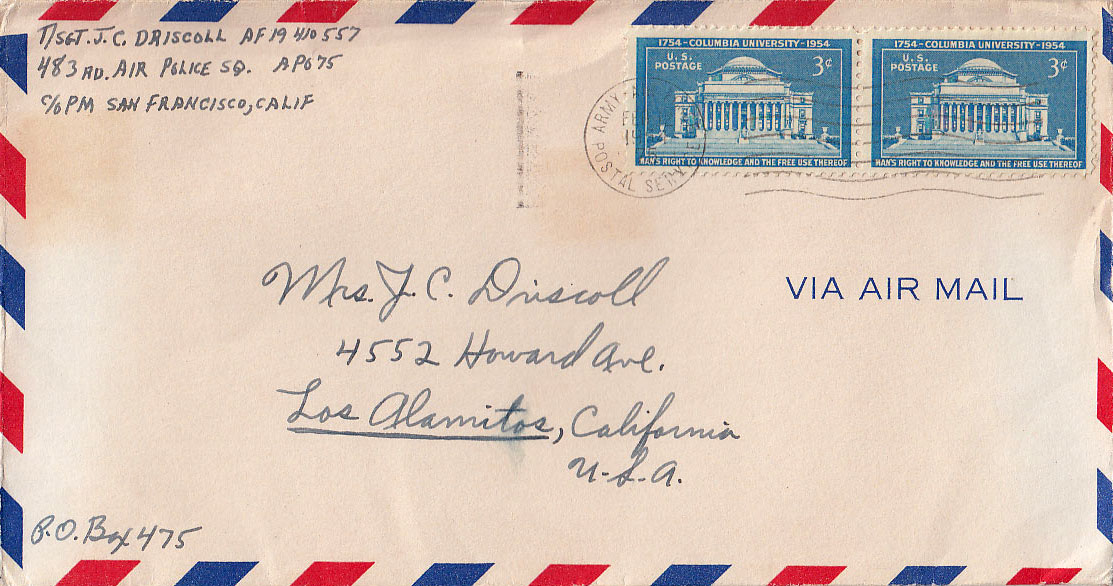 T/SGT. J. C. DRISCOLL AF 19 410 557
483 RD. AIR POLICE SQ. APO 75
C/O PM SAN FRANCISCO, CALIF
1754 - COLUMBIA UNIVERSITY - 1954
U.S. POSTAGE
3¢
MAN'S RIGHT TO KNOWLEDGE AND THE FREE USE THEREOF
1754 - COLUMBIA UNIVERSITY - 1954
U.S. POSTAGE
3¢
MAN'S RIGHT TO KNOWLEDGE AND THE FREE USE THEREOF
ARMY
POSTAL SERVICE
VIA AIR MAIL
Mrs. J. C. Driscoll
4552 Howard Ave.
Los Alamitos, California
U.S.A.
P.O. Box 475